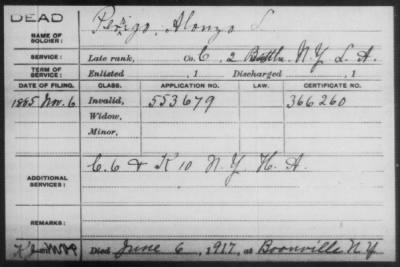 DEAD
NAME OF SOLDIER: Perigo, Alonzo L
SERVICE: Late rank, Co. C, 2 Battln. N.Y. L. A.
TERM OF SERVICE: Enlisted , 1 Discharged , 1
DATE OF FILING. CLASS. APPLICATION NO. LAW. CERTIFICATE NO.
1885 Nov. 6 Invalid, 553679 366260
Widow,
Minor,
ADDITIONAL SERVICES: C. C & K 10 N.Y. H. A.
REMARKS:
Died June 6, 1917, at Boonville N.Y.